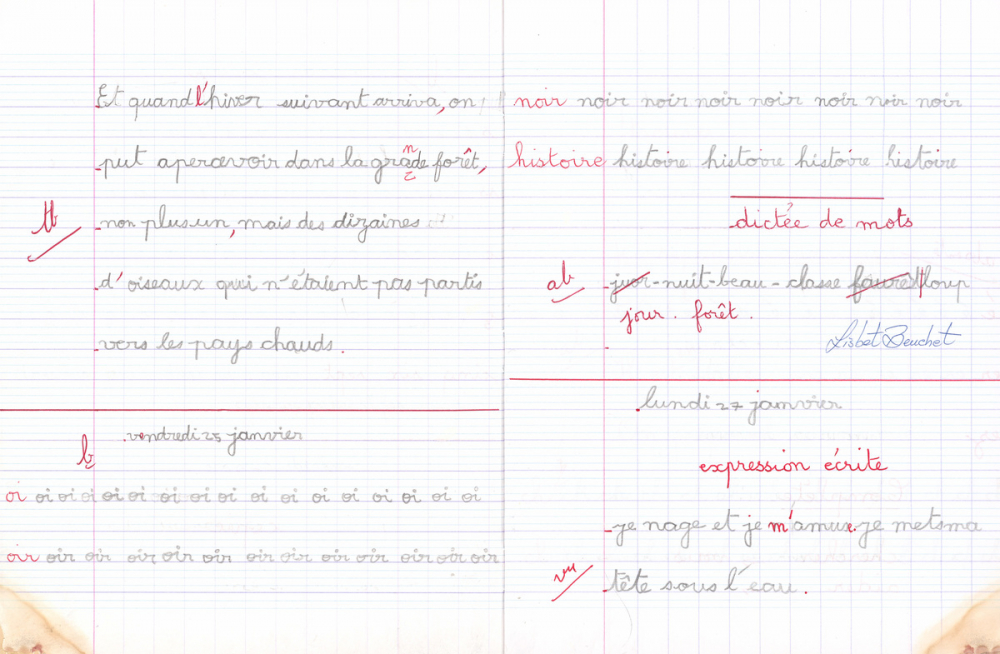 Et quand l'hiver suivant arriva, on
put apercevoir dans la grande forêt,
tb
non plus un, mais des dizaines
d'oiseaux qui n'étaient pas partis
vers les pays chauds.
vendredi 25 janvier
b
oi oi oi oi oi oi oi oi oi oi oi oi oi oi oi oi
oir oir oir oir oir oir oir oir oir oir oir oir oir
noir noir noir noir noir noir noir noir
histoire histoire histoire histoire histoire
dictée de mots
ab
jur-nuit-beau-classe loup
jour. forêt.
Lisbet Beuchet
lundi 27 janvier
expression écrite
je nage et je m'amux. je mets ma
vu
tête sous l'eau.